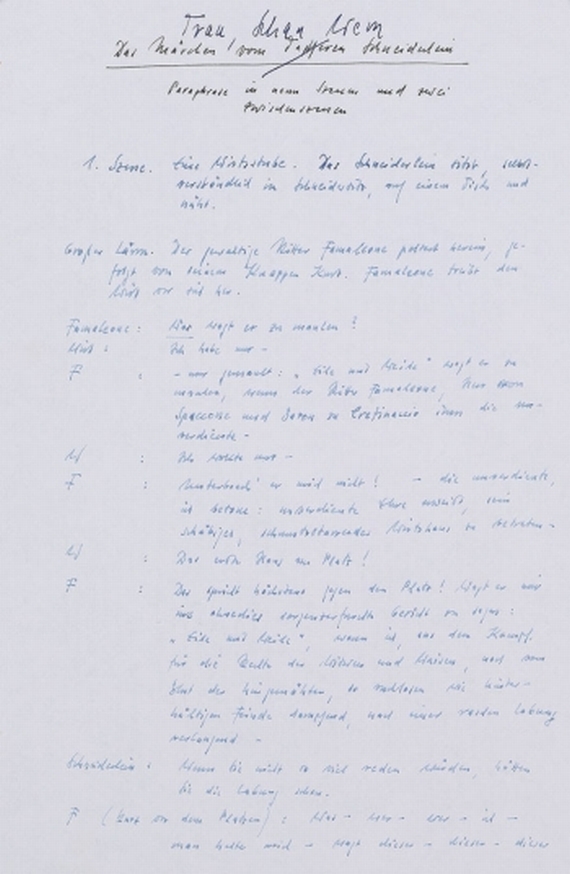 Trau, Schau Wem
Das Märchen vom Tapferen Schneiderlein
Paraphrase in neun Szenen und zwei
Zwischenszenen
1. Szene. Eine Wirtsstube. Das Schneiderlein sitzt, selbst-
verständlich im Schneidersitz, auf einem Tisch und
näht.
Großer Lärm. Der gewaltige Ritter Famaleone poltert herein, ge-
folgt von seinem Knappen Kurt. Famaleone treibt den
Wirt vor sich her.
Famaleone: Was wagt er zu maulen?
Wirt: Ich habe nur -
F: - nur gemault: "Eile mit Weile" wagt er zu
maulen, wenn der Ritter Famaleone, Herr von
und Baron zu ihm die un-
verdiente -
W: Ich wollte nur -
F: Unterbrech' er mich nicht! - die unverdiente,
ich betone: unverdiente Ehre erweist, sein
schäbiges, schmutzstarrendes Wirtshaus zu betreten -
W: Das erste Haus am Platz!
F: Das spricht höchstens gegen den Platz! Wagt er mir
ins ohnedies Gesicht zu sagen:
"Eile mit Weile", wenn ich, aus dem Kampf
für die Rechte der Witwen und Waisen, noch vom
Blut der hingemähten, so ruchlosen wie hinter-
hältigen Feinde dampfend, nach einer raschen Labung
verlangend -
Schneiderlein: Wenn Sie nicht so viel reden würden, hätten
Sie die Labung schon.
F (kurz vor dem Platzen): Was - wer - wer - ich -
man halte mich - wagt dieser - dieser - dieser